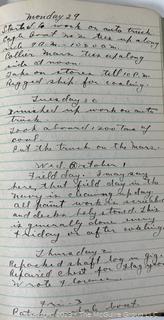 Monday 29
Started to work on auto truck
Eagle Boat No 2 ties up along
side 9 A.M. 10:30 a.m.
Collier Mars ties up along
side at noon.
Take on stores till 10 P.m.
Rigged ship for coaling.
Tuesday
Finished up work on auto
truck.
Took aboard 1200 tons of
coal.
Put the truck on the Mars.
Wed. October 1
Field day. I may say
here, that field day in the
Navy is cleaning up day.
All paint work is scrubbed
and decks holy stoned. This
is generally done every
Friday or after coaling.
Thursday 2
Repaired shaft log in gig.
Repaired chest for
Wrote
Fri. 3
boat